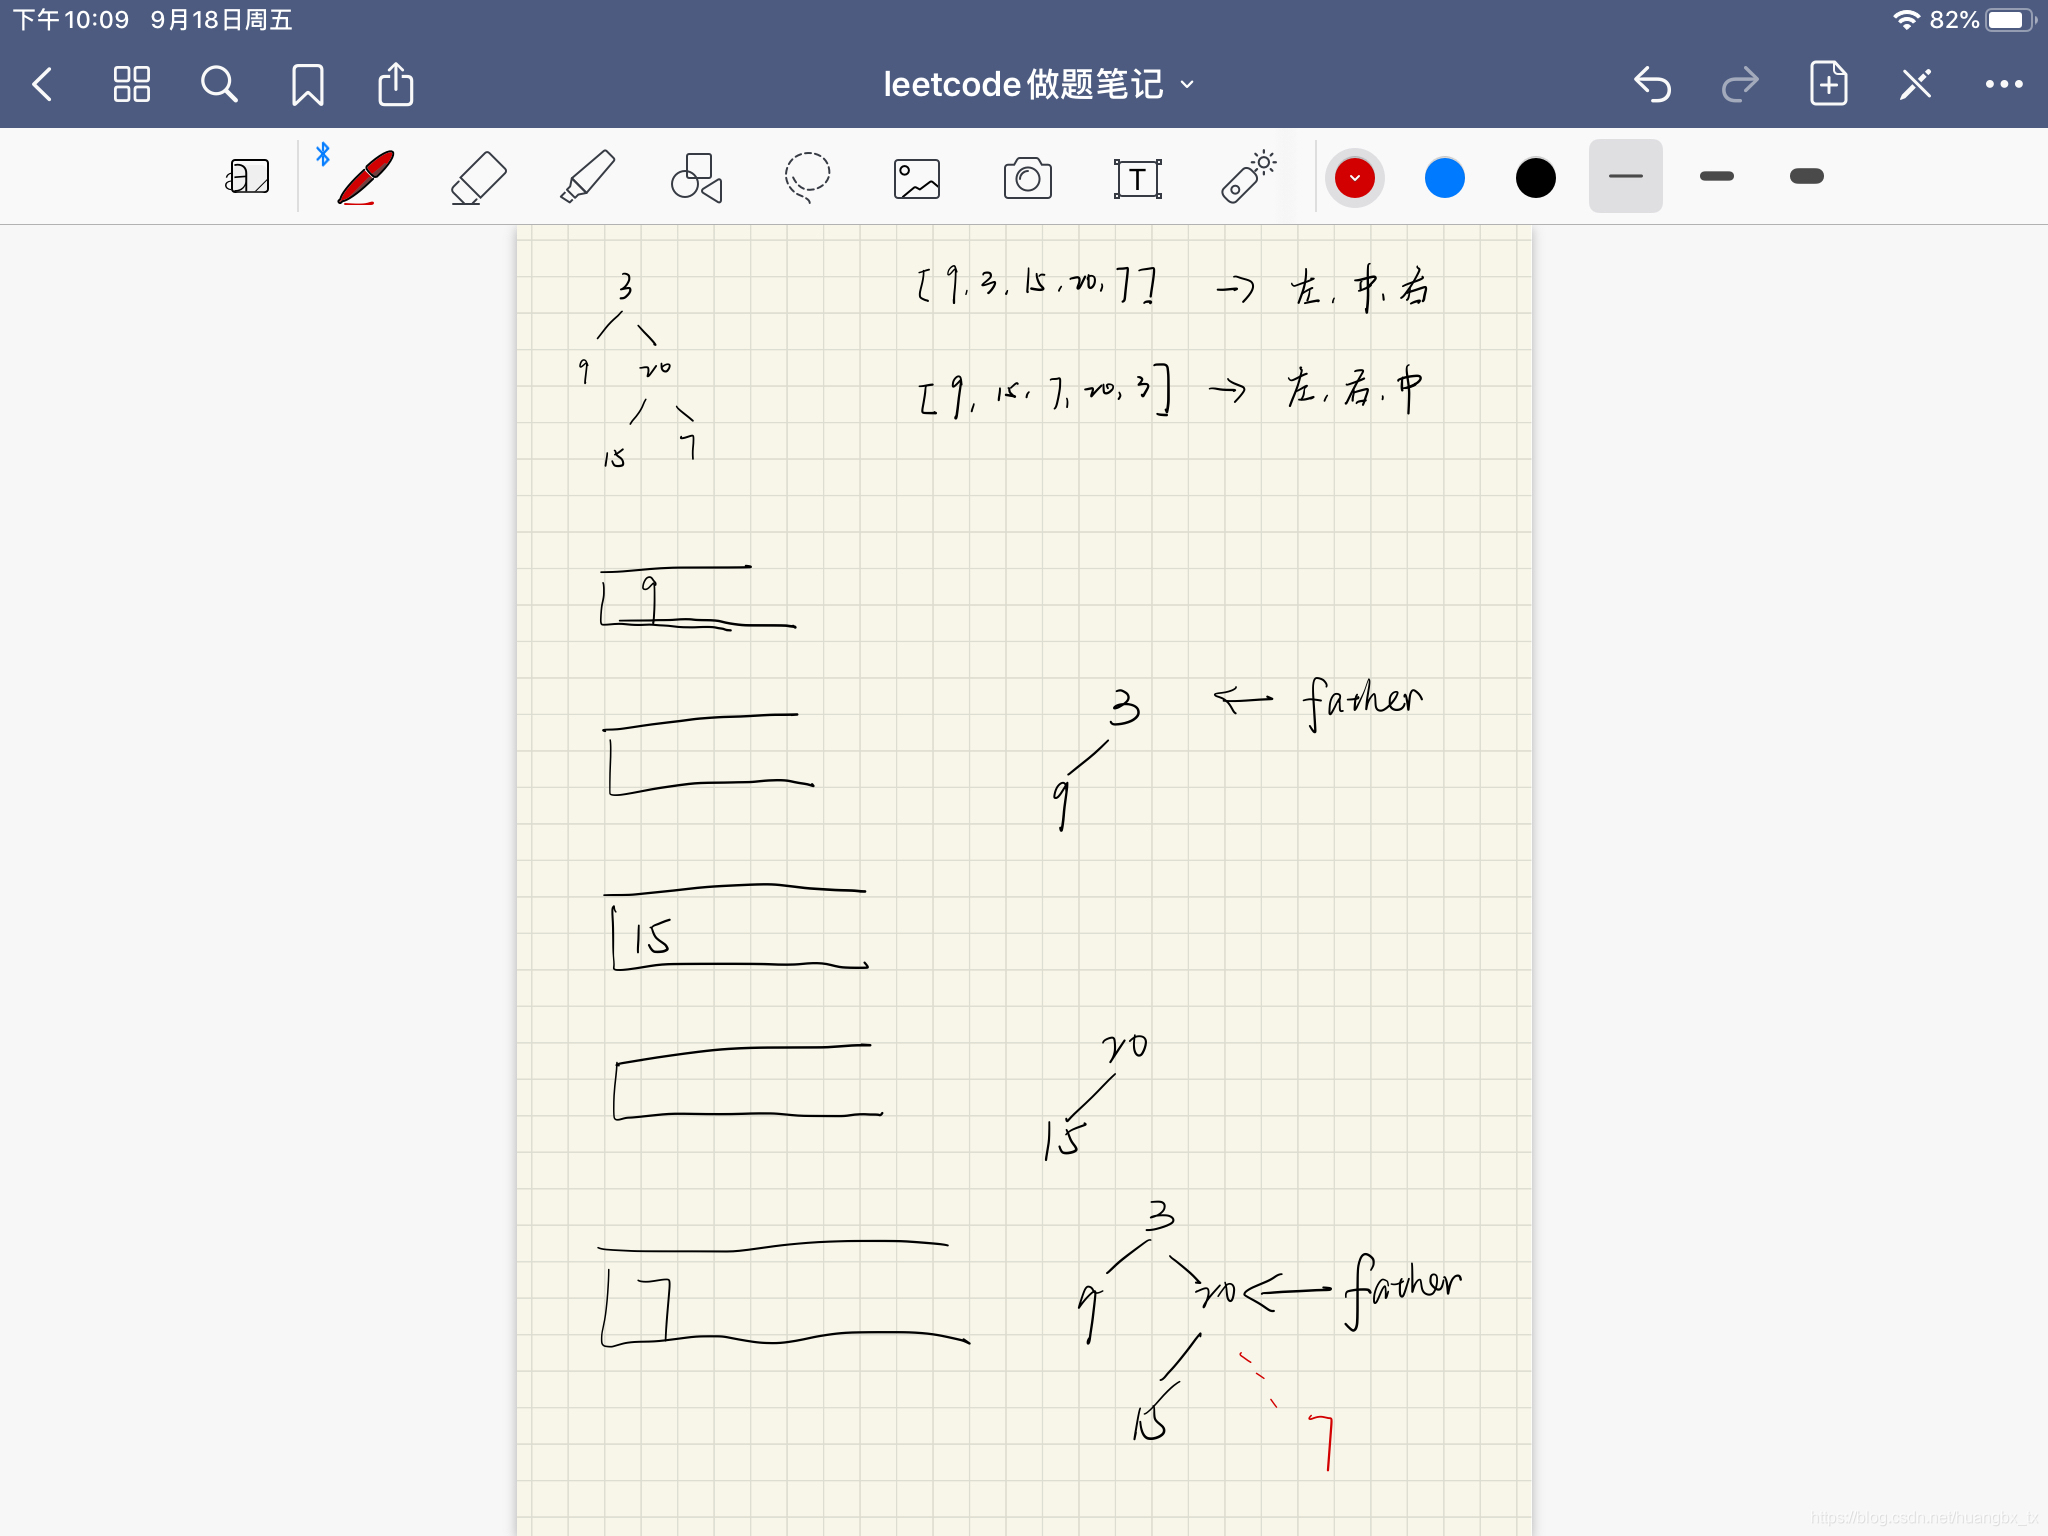 下午10:09 9月18日周五
82%
leetcode做题笔记
T
3
[9,3,15,20,7] → 左,中,右
9 20
[9,15,7,20,3] → 左,右,中
15 7
9
3 ← father
9
15
20
15
3
7
9 20 ← father
15
7
https://blog.csdn.net/huangbx_tx